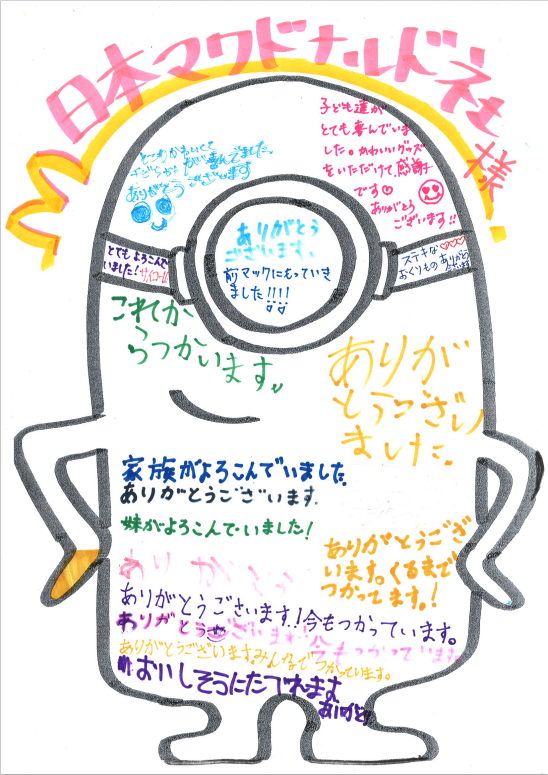 日本マクドナルド社様
子ども達が
とても喜んでいま
した。かわいいグッズ
をいただけて、感謝
です♡
ありがとう
ございます!!
とてもかわいくて
子どもたちが喜んでました。
ありがとうございます
ありがとう
ございます。
前マックにもっていき
ました!!!!
とてもよろこんで
いました!サイコー!!
ステキな♡♡♡
おくりものありがとう
ございます
これか
らつかいます。
ありが
とうござい
ました。
家族がよろこんでいました。
ありがとうございます.
妹がよろこんでいました!
ありがとうござ
います。くるまで
つかってます。!
ありがとう
ありがとうございます!今もつかっています。
ありがとうございます
今もつかっています
ありがとうございますみんなでつかっています。
おいしそうにたべれます
ありがとう